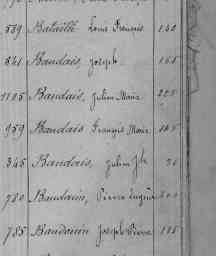 589 Bataillé Louis François 140
841 Baudais, Joseph 155
1105 Baudais, Julien Marie 225
959 Baudais François Marie 145
345 Baudais, Julien 26
780 Baudain, Pierre
785 Baudouin Joseph Pierre 115